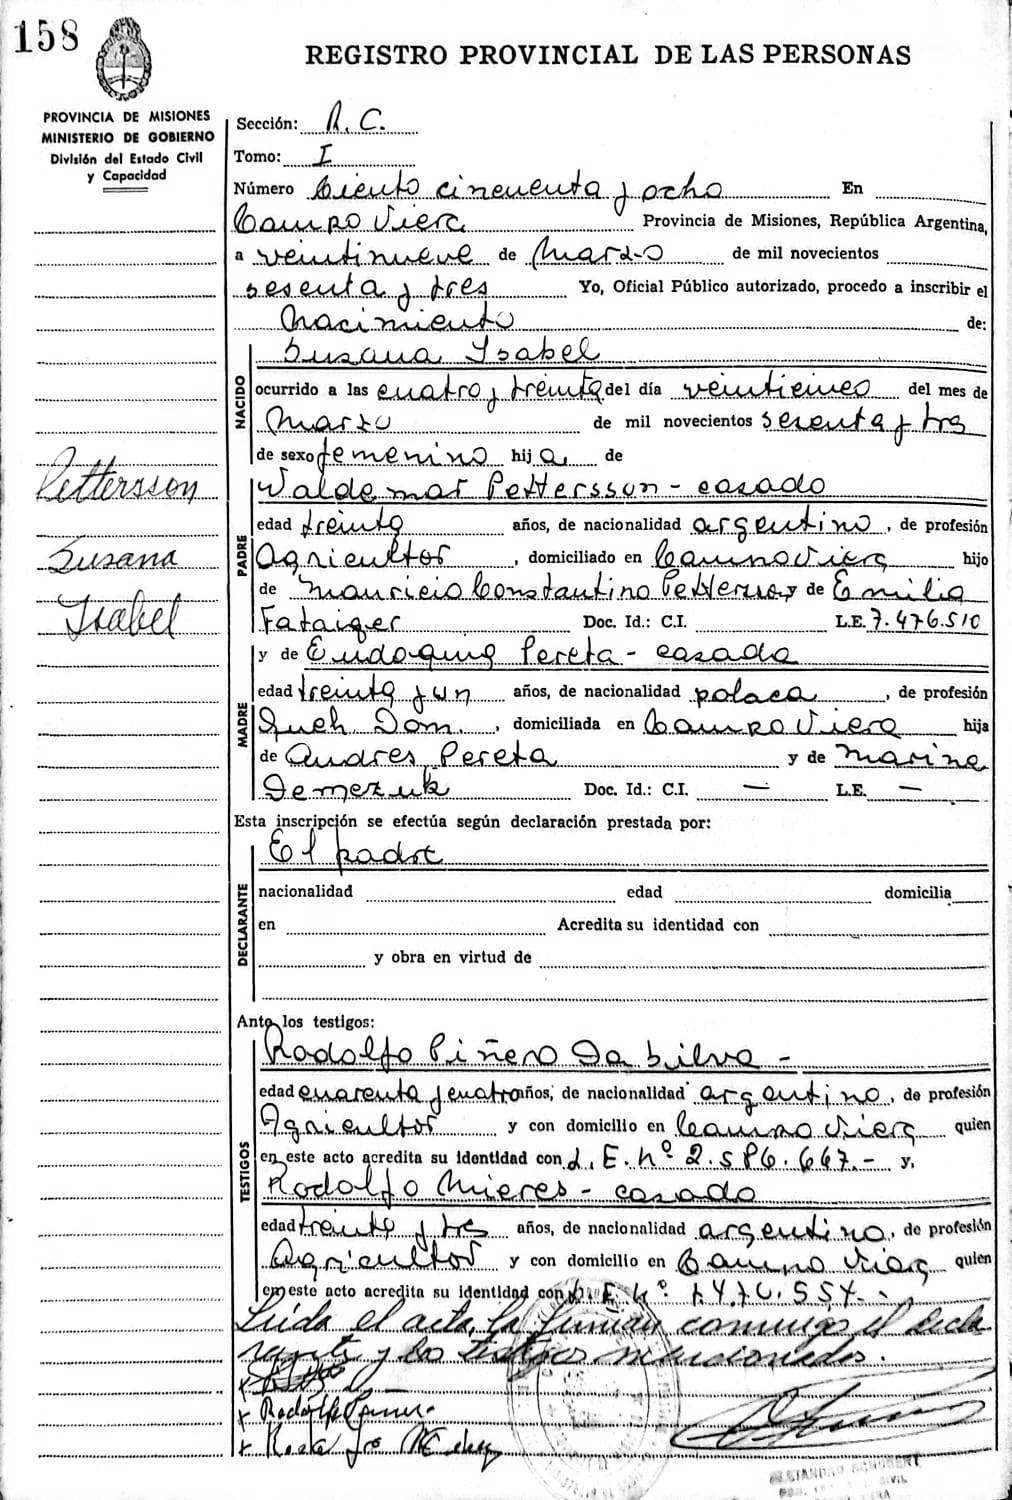 158
REGISTRO PROVINCIAL DE LAS PERSONAS
PROVINCIA DE MISIONES
MINISTERIO DE GOBIERNO
División del Estado Civil
y Capacidad
Sección: R. C.
Tomo: I
Número Ciento cincuenta y ocho En
Campo Viera Provincia de Misiones, República Argentina,
a veintinueve de Marzo de mil novecientos
sesenta y tres Yo, Oficial Público autorizado, procedo a inscribir el
Nacimiento de:
Susana Ysabel
NACIDO
ocurrido a las cuatro y treinta del día veinticinco del mes de
Marzo de mil novecientos sesenta y tres
de sexo femenino hija de
Pettersson
Susana
Ysabel
Waldemar Pettersson - casado
PADRE
edad treinta años, de nacionalidad argentino, de profesión
Agricultor, domiciliado en Campo Viera hijo
de Mauricio Constantino Pettersson y de Emilia
Fataiger Doc. Id.: C.I. L.E. 7.476.510
y de Eudoquia Pereta - casada
MADRE
edad treinta y un años, de nacionalidad polaca, de profesión
Queh. Dom., domiciliada en Campo Viera hija
de Andres Pereta y de Marina
Demezuk Doc. Id.: C.I. — L.E. —
Esta inscripción se efectúa según declaración prestada por:
El padre
DECLARANTE
nacionalidad edad domicilia
en Acredita su identidad con
y obra en virtud de
Ante los testigos:
Rodolfo Piñero Da Silva -
TESTIGOS
edad cuarenta y cuatro años, de nacionalidad argentino, de profesión
Agricultor y con domicilio en Campo Viera quien
en este acto acredita su identidad con L.E. Nº 2.586.667.- y,
Rodolfo Mieres - casado
edad treinta y tres años, de nacionalidad argentino, de profesión
Agricultor y con domicilio en Campo Viera quien
en este acto acredita su identidad con L.E. Nº 7.476.554.-
Leida el acta, la firman conmigo el decla
rante y los testigos mencionados.